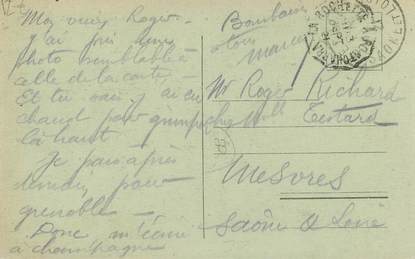 Mon vieux Roger
j'ai pris une
photo semblable à
celle de la carte
Et tu sais j'ai eu
chaud pour grimper
Là haut
je pars après
demain pour
grenoble
Donc m'écrire
à champagne
Bonbaisers
a tous
Marcel
Mr Roger Richard
chez Mlle Testard
Mesvres
Saône & Loire